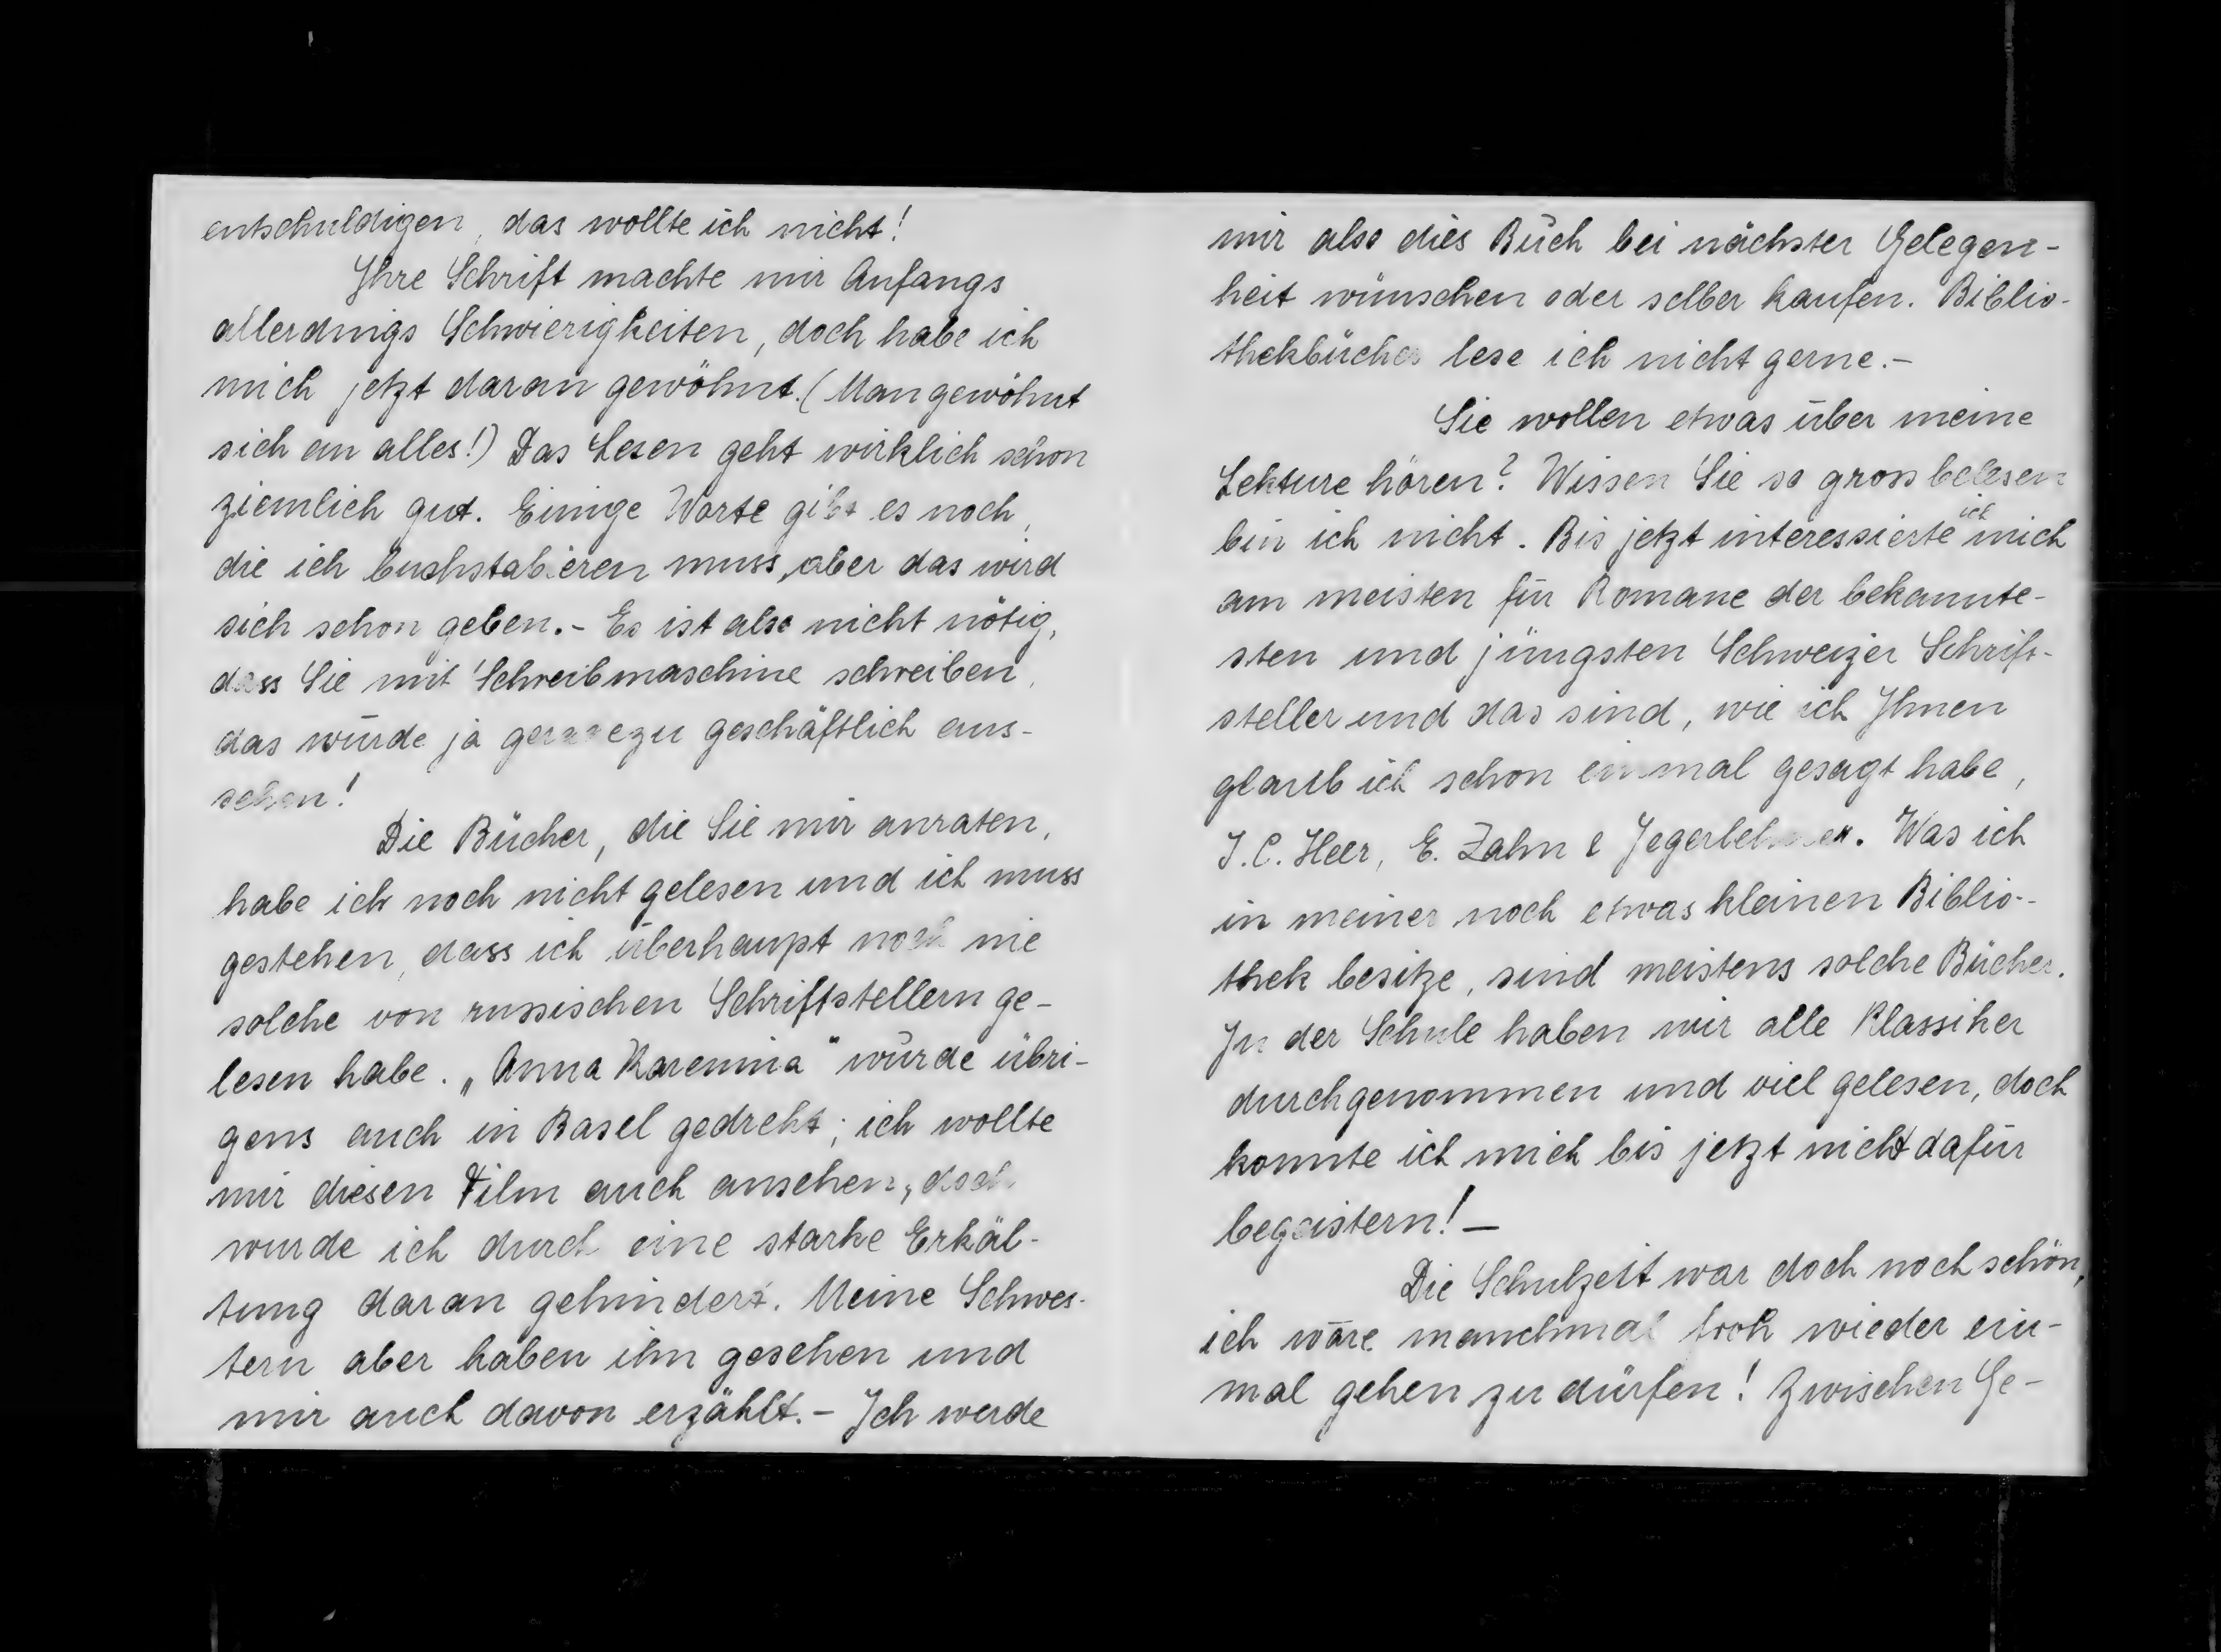 entschuldigen, das wollte ich nicht!
Ihre Schrift machte mir Anfangs
allerdings Schwierigkeiten, doch habe ich
mich jetzt daran gewöhnt. (Man gewöhnt
sich an alles!) Das Lesen geht wirklich schon
ziemlich gut. Einige Worte gibt es noch,
die ich buchstabieren muss, aber das wird
sich schon geben. - Es ist also nicht nötig,
dass Sie mit Schreibmaschine schreiben,
das würde ja geradezu geschäftlich aus-
sehen!
Die Bücher, die Sie mir anraten,
habe ich noch nicht gelesen und ich muss
gestehen, dass ich überhaupt noch nie
solche von russischen Schriftstellern ge-
lesen habe. „Anna Karenina" wurde übri-
gens auch in Basel gedreht; ich wollte
mir diesen Film auch ansehen, doch
wurde ich durch eine starke Erkäl-
tung daran gehindert. Meine Schwes-
tern aber haben ihn gesehen und
mir auch davon erzählt. - Ich werde
mir also dies Buch bei nächster Gelegen-
heit wünschen oder selber kaufen. Biblio-
thekbücher lese ich nicht gerne. -
Sie wollen etwas über meine
Lekture hören? Wissen Sie so gross belesen
bin ich nicht. Bis jetzt interessierte ich mich
am meisten für Romane der bekannte-
sten und jüngsten Schweizer Schrift-
steller und das sind, wie ich Ihnen
glaub ich schon einmal gesagt habe,
J. C. Heer, E. Zahn & Jegerlehner. Was ich
in meiner noch etwas kleinen Biblio-
thek besitze, sind meistens solche Bücher.
In der Schule haben wir alle Klassiker
durchgenommen und viel gelesen, doch
konnte ich mich bis jetzt nicht dafür
begeistern! -
Die Schulzeit war doch noch schön,
ich wäre manchmal froh wieder ein-
mal gehen zu dürfen! Zwischen Ge-